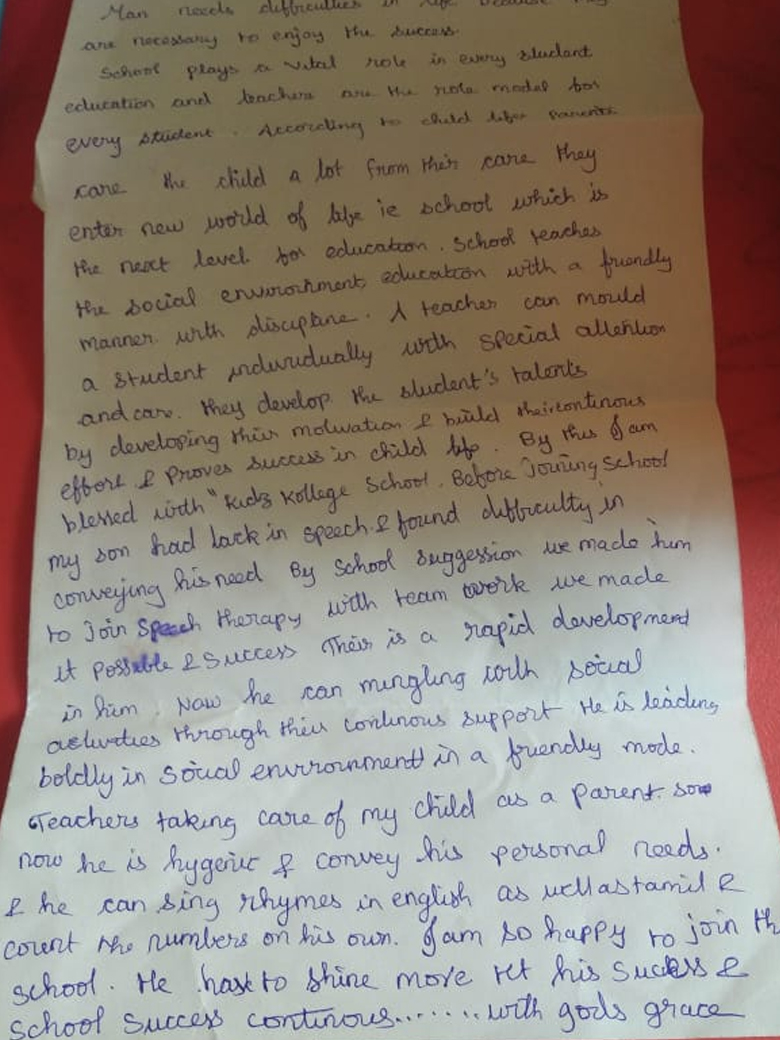 Man needs difficulties in life because they
are necessary to enjoy the success.
School plays a vital role in every student
education and teachers are the role model for
every student. According to child life parents
care the child a lot from their care they
enter new world of life ie school which is
the next level for education. School teaches
the social environment education with a friendly
manner with discipline. A teacher can mould
a student individually with special attention
and care. they develop the student's talents
by developing their motivation & build their continous
effort & proves success in child life. By this I am
blessed with "Kidz Kollege School. Before Joining School
my son had lack in speech & found difficulty in
conveying his need By School suggession we made him
to join Speech therapy with team work we made
it possible & Success Their is a rapid development
in him Now he can mingling with social
activities through their continous support He is leading
boldly in Social environment in a friendly mode.
Teachers taking care of my child as a parent. so
now he is hygenic & convey his personal needs.
& he can sing rhymes in english as well as tamil &
count the numbers on his own. I am so happy to join th
school. He has to shine more let his Success &
School Success continous....... with gods grace